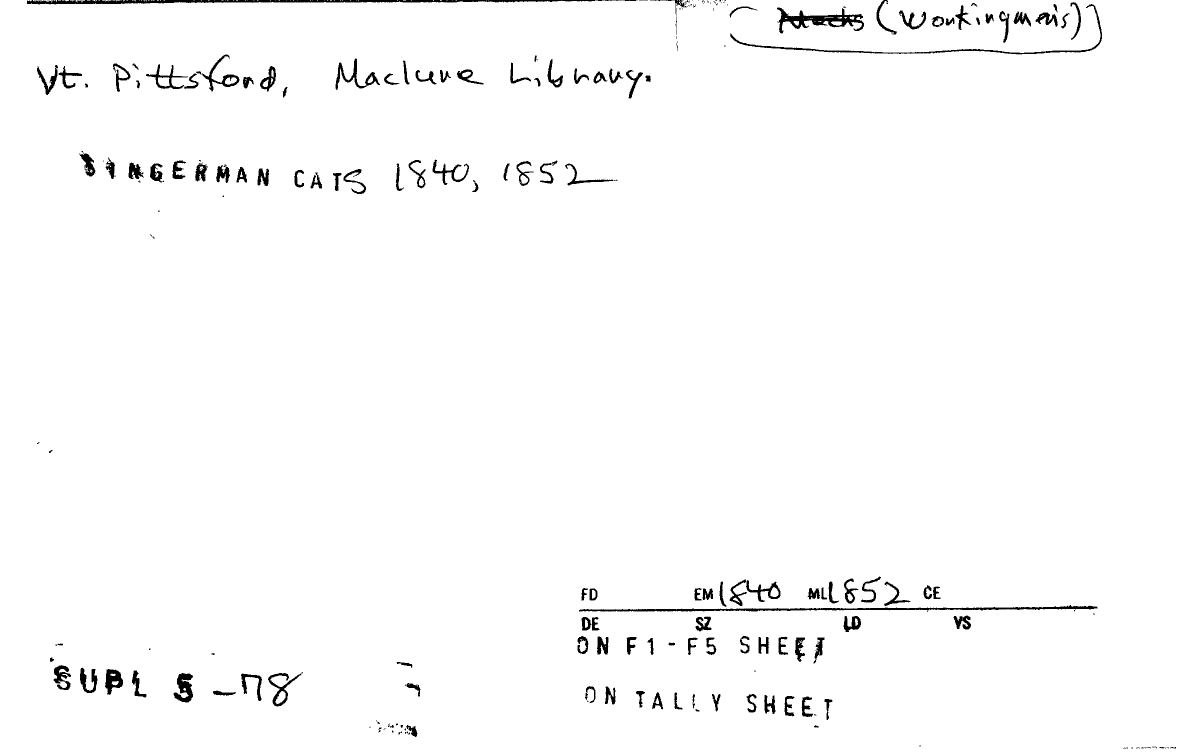 (Workingmen's)
Vt. Pittsford, Maclure Library.
SINGERMAN CATS 1840, 1852
FD EM 1840 ML 1852 CE
DE SZ LD VS
ON F1-F5 SHEET
SUPL S -78
ON TALLY SHEET